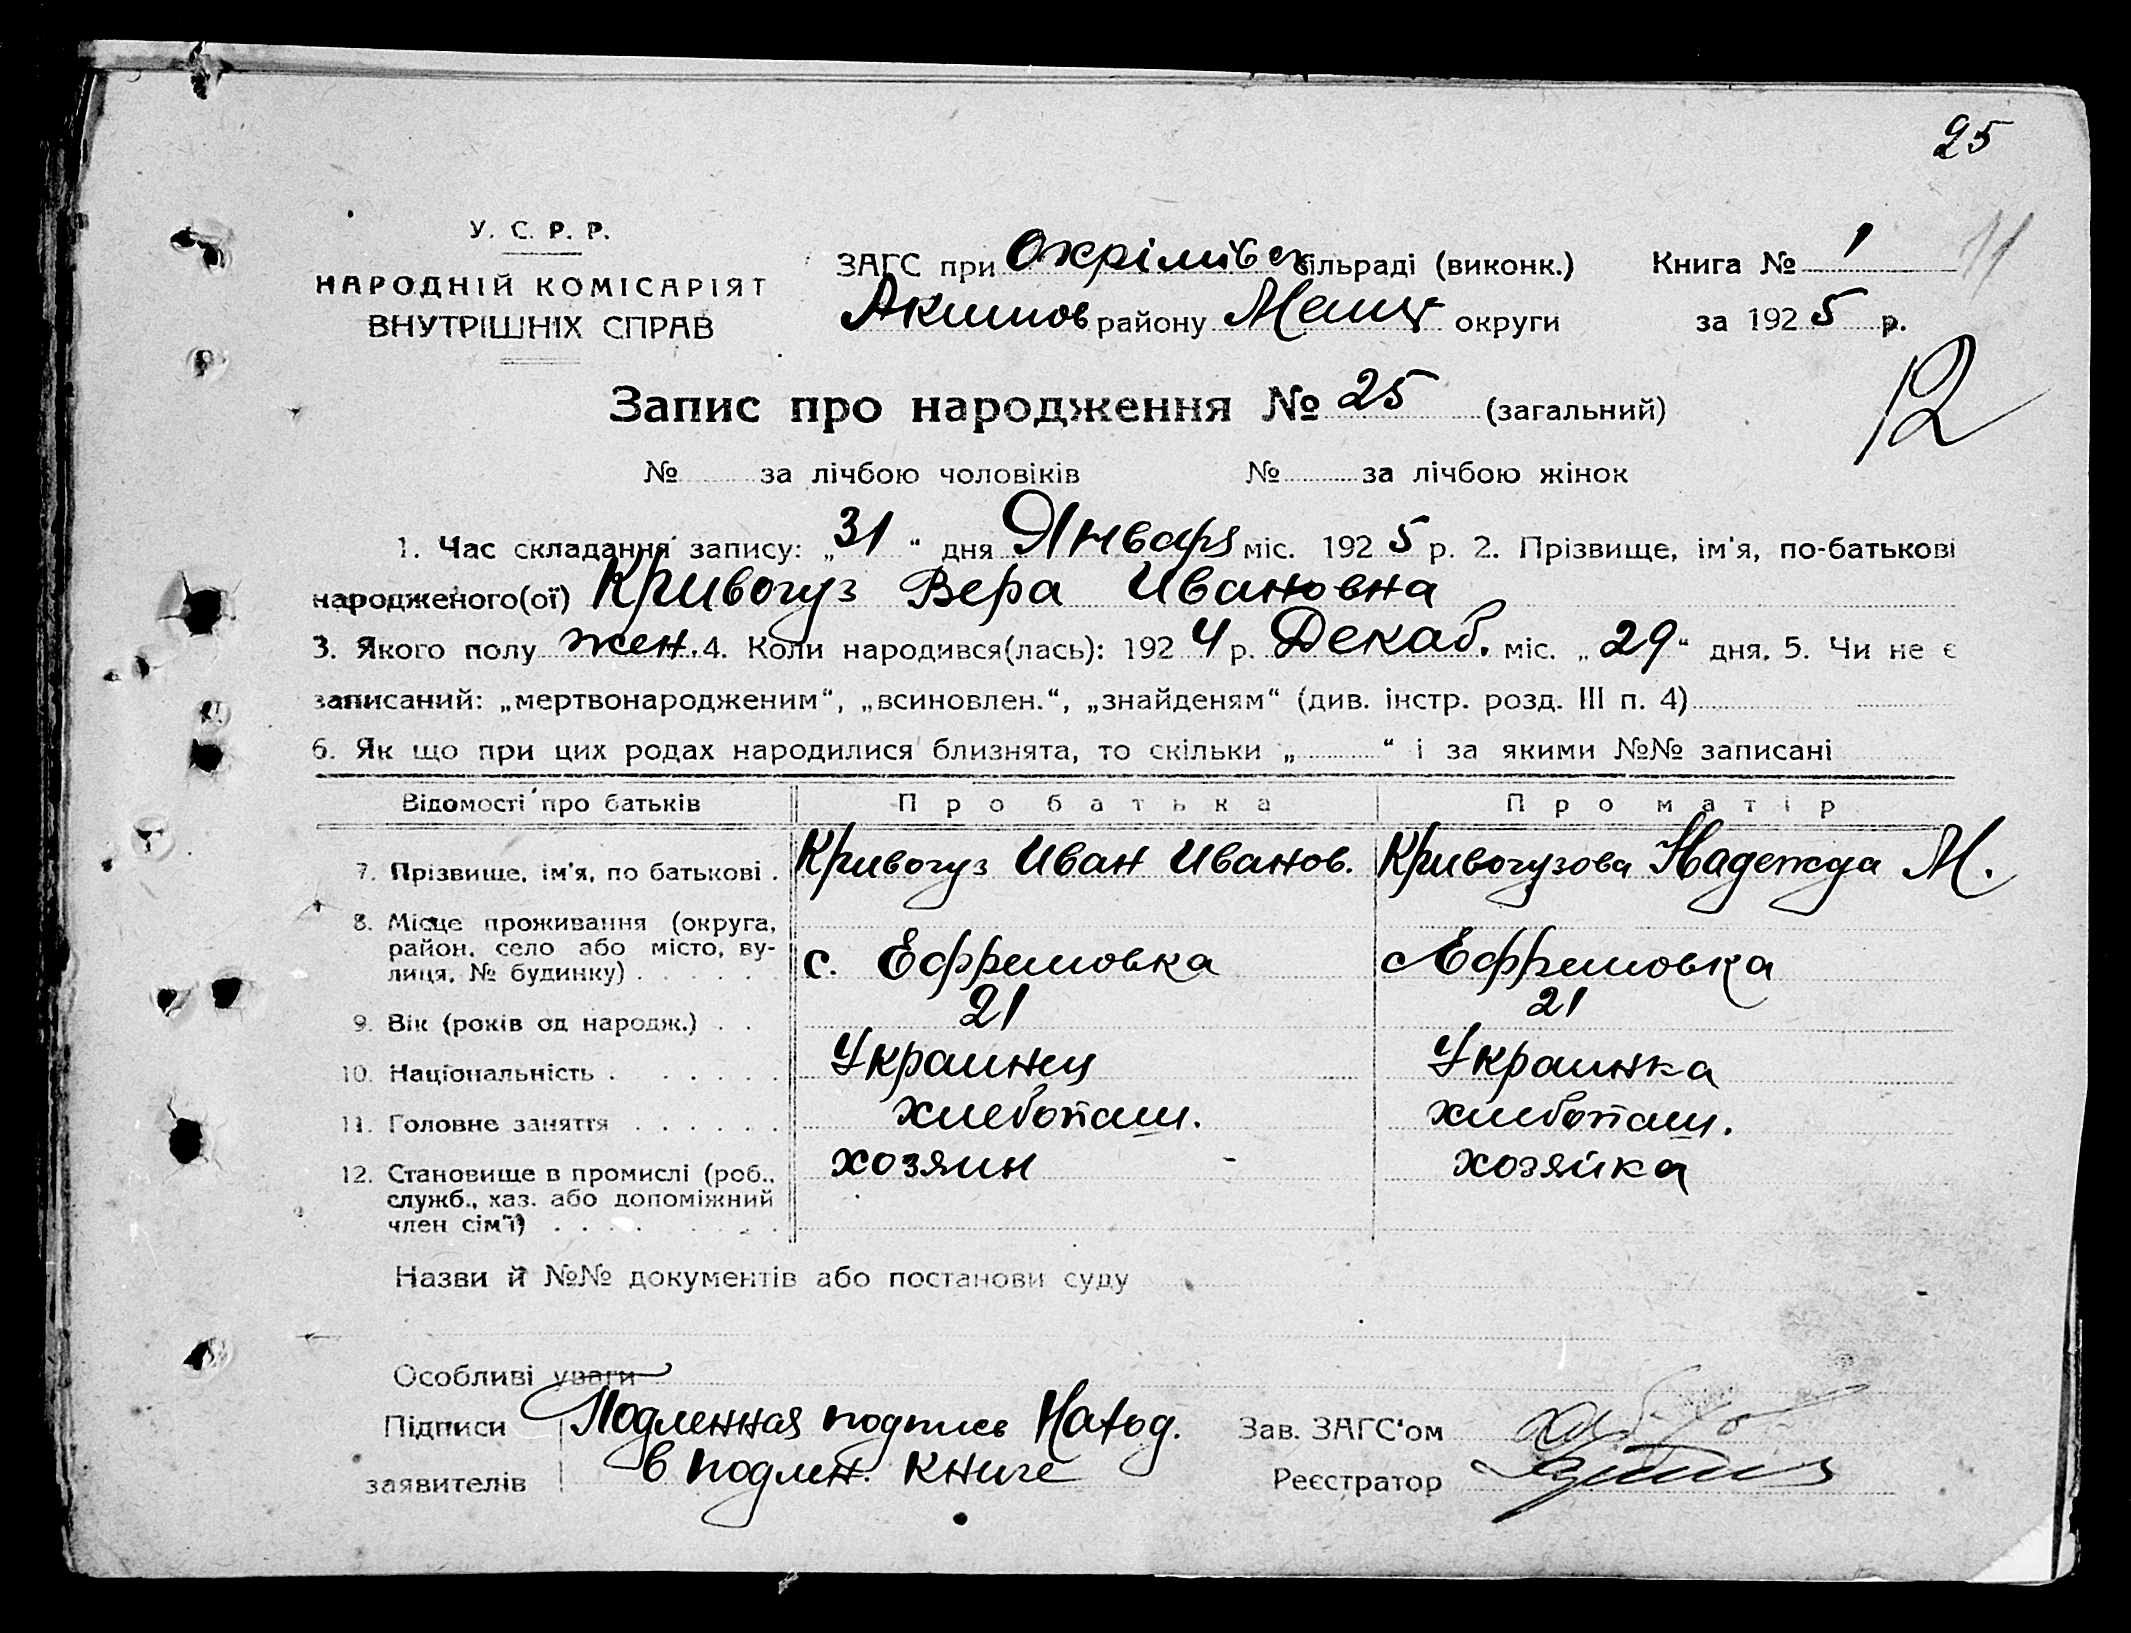 25
У. С. Р. Р.
НАРОДНІЙ КОМІСАРІЯТ
ВНУТРІШНІХ СПРАВ
ЗАГС при Охрімівск сільраді (виконк.)
Акимов району Мелит округи
Книга № 1
11
за 1925 р.
12
Запис про народження № 25 (загальний)
№ за лічбою чоловіків № за лічбою жінок
1. Час складання запису: „31“ дня Января міс. 1925 р. 2. Прізвище, ім'я, по-батькові
народженого(ої) Кривогуз Вера Ивановна
3. Якого полу жен. 4. Коли народився(лась): 1924 р. Декаб. міс. „29“ дня. 5. Чи не є
записаний: „мертвонародженим“, „всиновлен.“, „знайденям“ (див. інстр. розд. III п. 4)
6. Як що при цих родах народилися близнята, то скільки „ “ і за якими №№ записані
Відомості про батьків Про батька Про матір
7. Прізвище, ім'я, по батькові . Кривогуз Иван Иванов. Кривогузова Надежда М.
8. Місце проживання (округа,
район, село або місто, ву-
лиця, № будинку) . . . . . с. Ефремовка с Ефремовка
9. Вік (років од народж.) . . 21 21
10. Національність . . . . . . Украинец Украинка
11. Головне заняття . . . . . . хлебопаш. хлебопаш.
12. Становище в промислі (роб.,
служб., хаз. або допоміжний
член сім'ї) . . . . . . . хозяин - хозяйка
Назви й №№ документів або постанови суду
Особливі уваги
Підписи Подленная подпись Наход.
заявителів в подлен. книге
Зав. ЗАГС'ом
Реєстратор